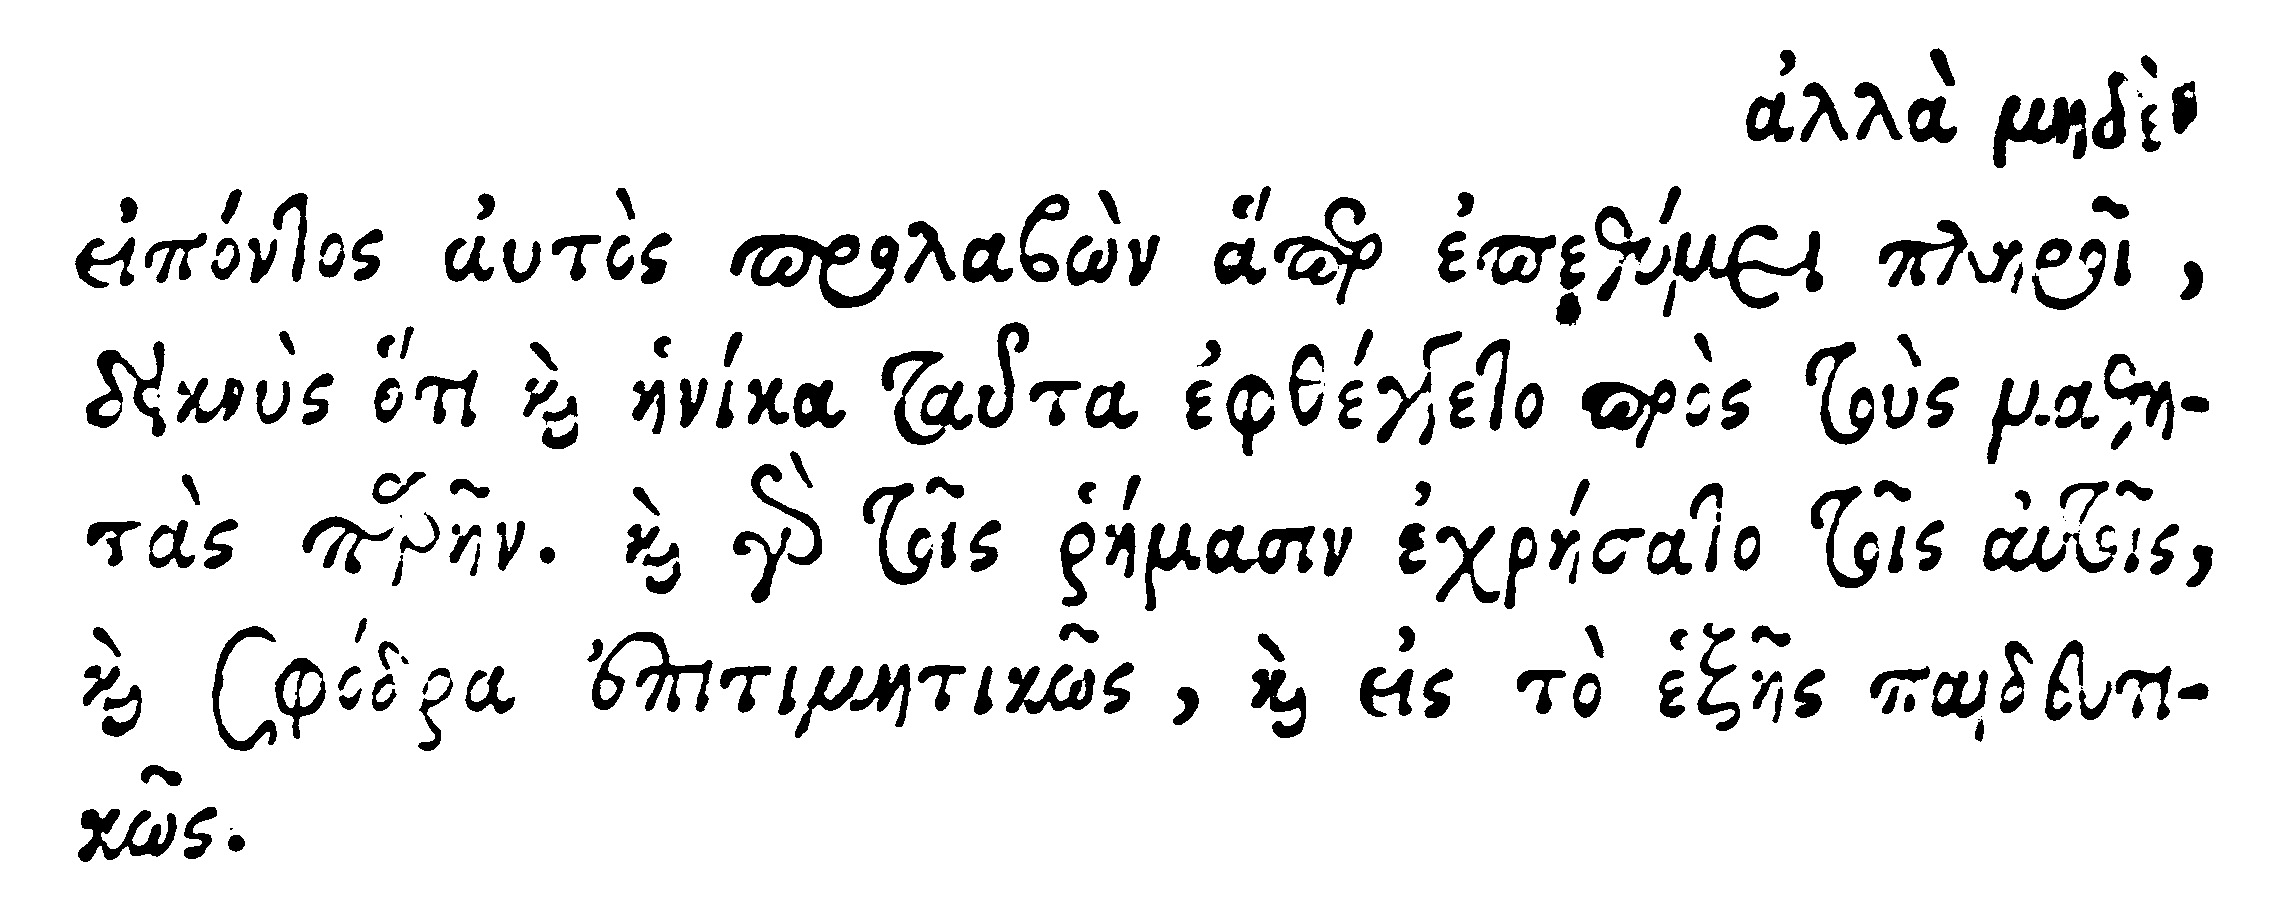 ἀλλὰ μηδὲν
εἰπόντος αὐτὸς προλαβὼν ἅπερ ἐπεθύμει πληροῖ,
δεικνὺς ὅτι καὶ ἡνίκα ταῦτα ἐφθέγγετο πρὸς τοὺς μαθη-
τὰς παρῆν. καὶ γὰρ τοῖς ῥήμασιν ἐχρήσατο τοῖς αὐτοῖς,
καὶ σφόδρα ἐπιτιμητικῶς, καὶ εἰς τὸ ἑξῆς παιδευτι-
κῶς.